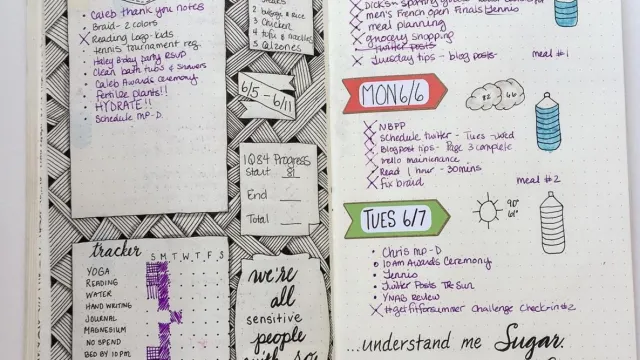 Caleb thank you notes
Braid - 2 colors
Reading Logs - kids
tennis tournament reg.
Haley B'day party RSVP
Clean bath tubs & showers
Caleb Awards ceremony
Fertilize plants!!
HYDRATE!!
Schedule MP-D
2 & Rice
3 Chicken
4 tofu & noodles
5 Qlzones
6/5 - 6/11
1Q84 Progress
Start 81
End
Total
tracker
S M T W T F S
YOGA
READING
WATER
HAND WRITING
JOURNAL
MAGNESIUM
NO SPEND
BED BY 10 PM
we're
all
sensitive
people
with so
DICKS - sporting goods
men's French Open Finals Tennis
meal planning
grocery shopping
Twitter posts
Tuesday tips - blog posts
meal #1
MON 6/6
82 66
NBPP
schedule twitter - Tues - Wed
Blog post tips - Page 3 complete
Trello maintenance
Read 1 hour - 30 mins
fix braid
meal #2
TUES 6/7
90°
61°
Chris MP-D
10 AM Awards Ceremony
Tennis
Twitter Posts T
YNAB Review
#getfitforsummer Challenge Check-in #2
...understand me Sugar.